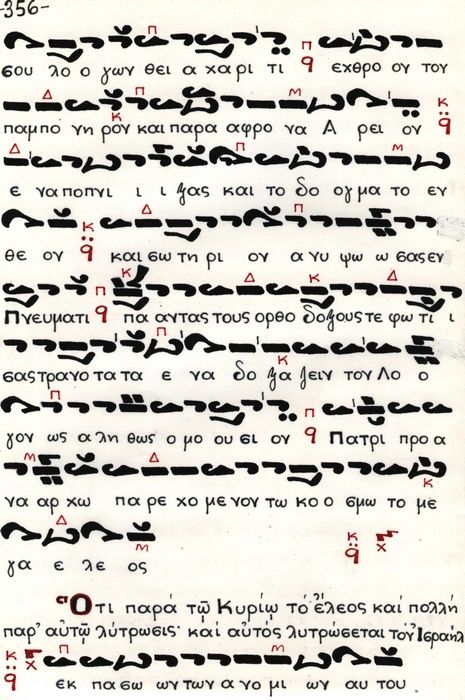 -356-
σου λο ο γων θει α χα ρι τι εχθρο ον τον
παμπο νη ρον και παρα αφρο να Α ρει ον
ε να ποπνι ι ι ξας και το δο ογ μα το εν
θε ον και σω τη ρι ον α νυ ψω ω σας εν
Πνευματι πα αντας τους ορθο δοξους τε φω τι ι
σας τρανο τα τα ε να δο ξα ζειν τον Λο ο
γον ως α λη θως ο μο ου σι ον Πατρι προ α
να αρ χω πα ρε χο με νον τω κο ο σμω το με
γα ε λε ος
Ὅτι παρά τῶ Κυρίῳ τό ἔλεος καί πολλή
παρ' αὐτῷ λύτρωσις· καί αὐτός λυτρώσεται τόν Ἰσραήλ
εκ πασω ων των α νο μι ων αυ του